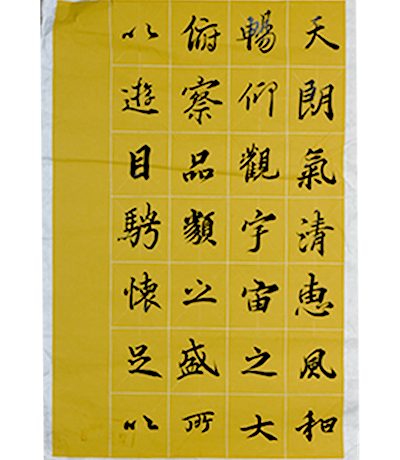 天朗氣清惠風和
暢仰觀宇宙之大
俯察品類之盛所
以遊目騁懷足以